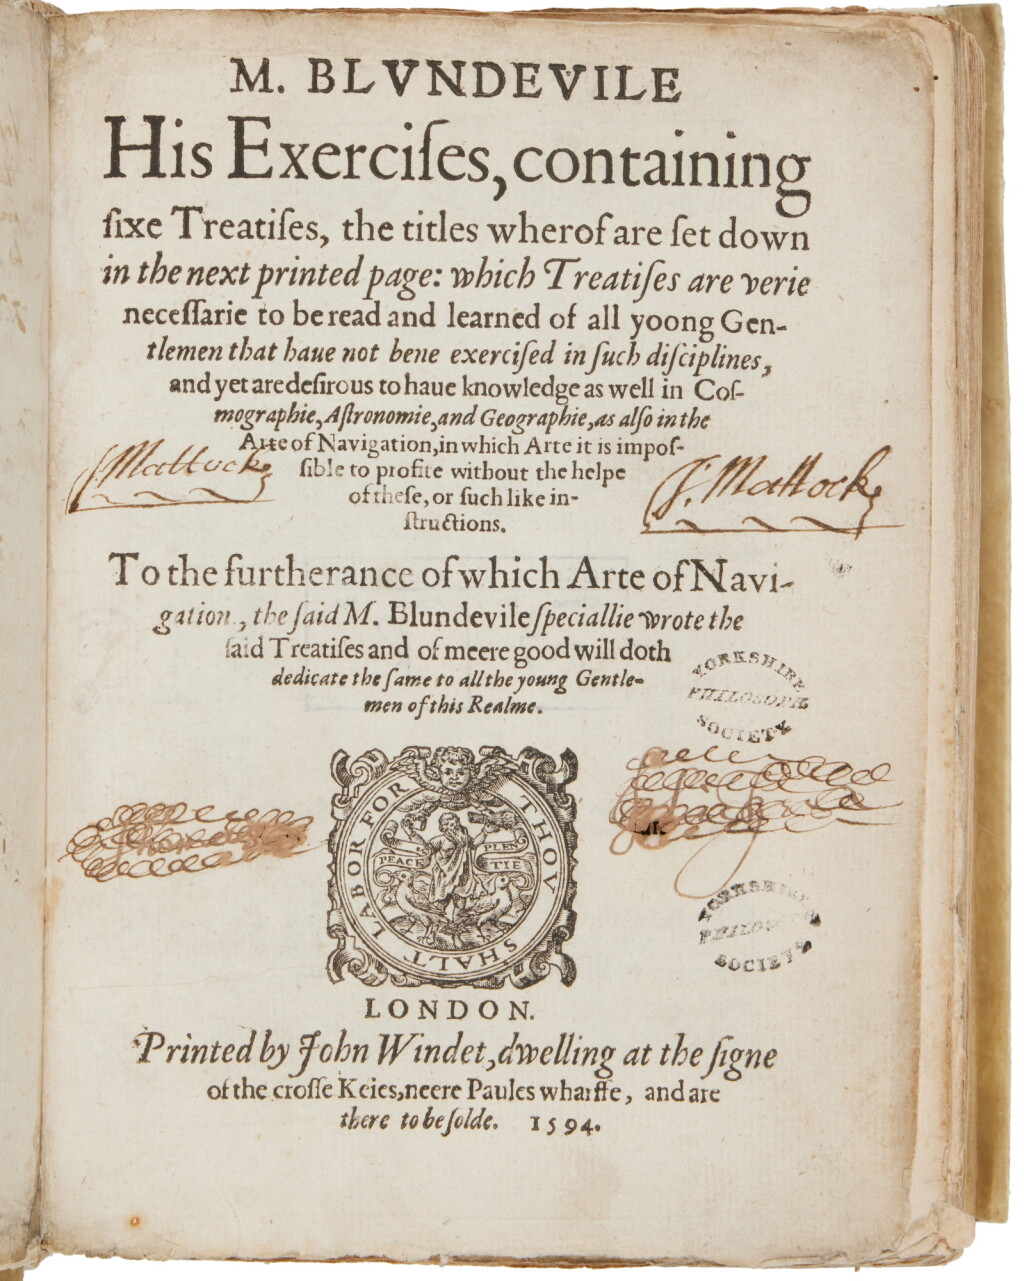 M. BLVNDEVILE
His Exerciſes, containing
ſixe Treatiſes, the titles wherof are ſet down
in the next printed page: which Treatiſes are verie
neceſſarie to be read and learned of all yoong Gen-
tlemen that haue not bene exerciſed in ſuch diſciplines,
and yet are deſirous to haue knowledge as well in Coſ-
mographie, Aſtronomie, and Geographie, as alſo in the
Arte of Navigation, in which Arte it is impoſ-
J. Mattock
ſible to profite without the helpe
J. Mattock
of theſe, or ſuch like in-
ſtructions.
To the furtherance of which Arte of Navi-
gation, the ſaid M. Blundevile ſpeciallie wrote the
ſaid Treatiſes and of meere good will doth
dedicate the ſame to all the young Gentle-
men of this Realme.
YORKSHIRE
PHILOSOPH
SOCIETY
THOV SHALT LABOR FOR
PEACE
PLEN
TIE
YORKSHIRE
PHILOSOPH
SOCIETY
LONDON.
Printed by John Windet, dwelling at the ſigne
of the croſſe Keies, neere Paules wharffe, and are
there to be ſolde. 1594.